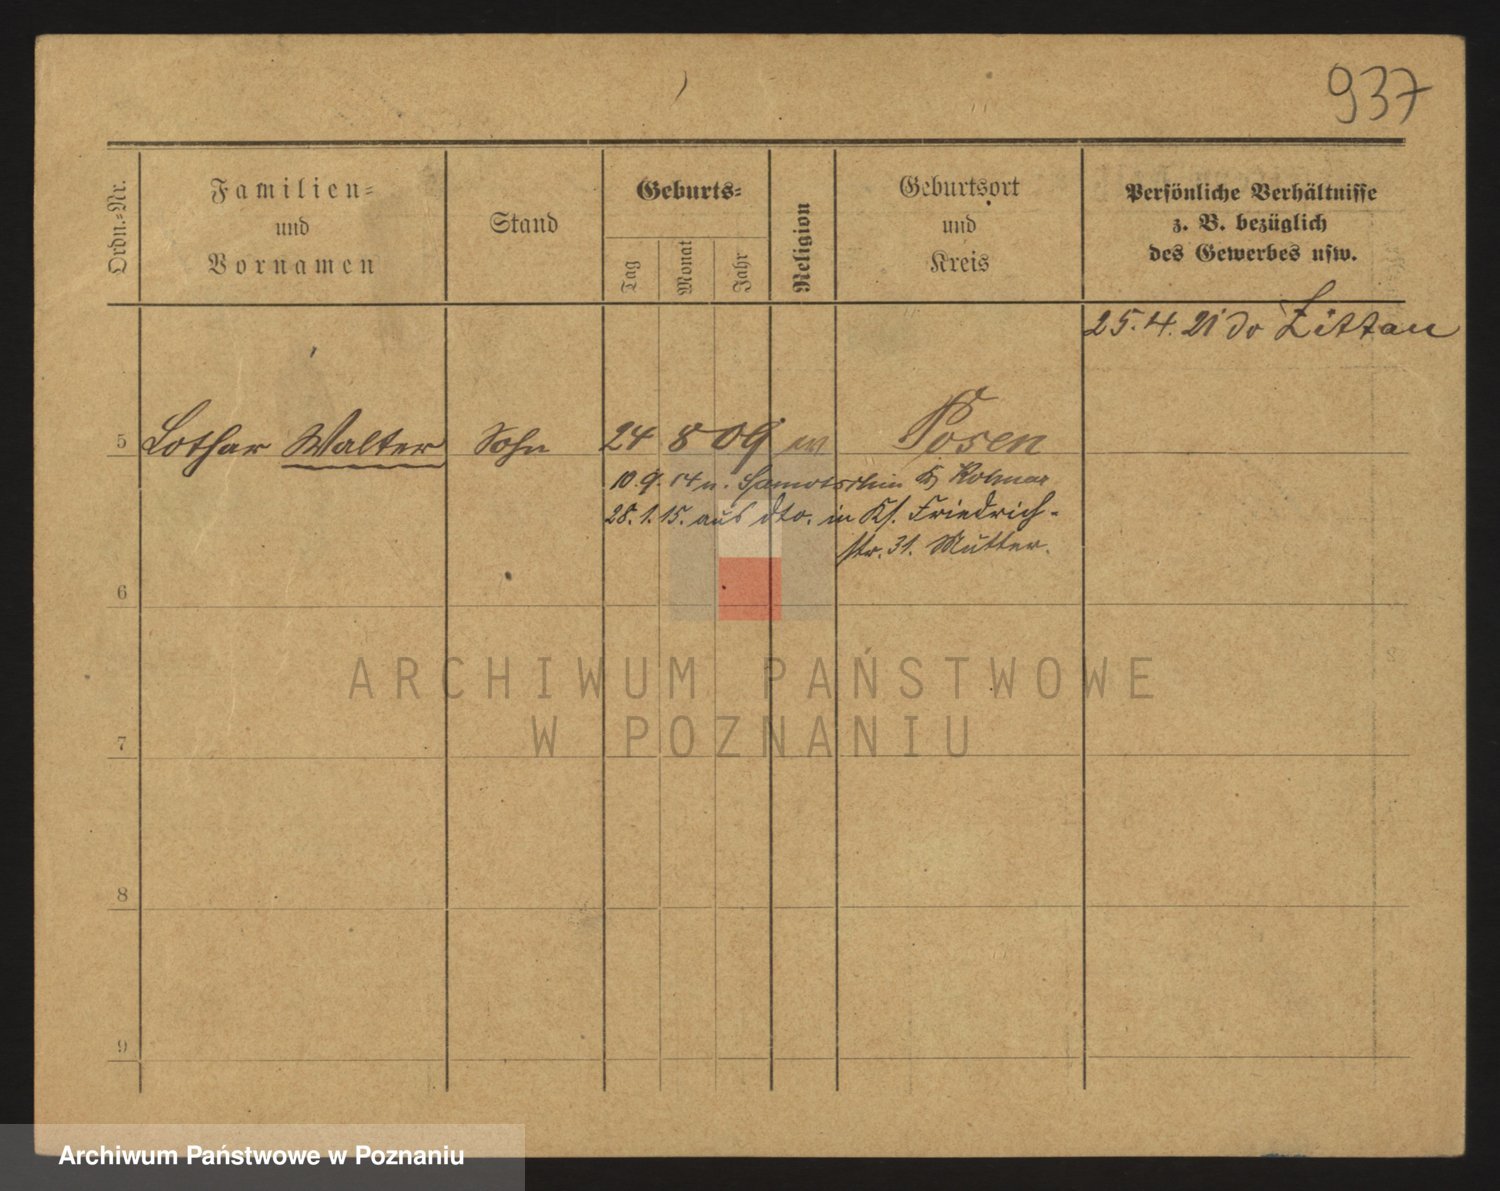 937
Ordn.-Nr.
Familien-
und
Vornamen
Stand
Geburts-
Tag
Monat
Jahr
Religion
Geburtsort
und
Kreis
Persönliche Verhältnisse
z. B. bezüglich
des Gewerbes usw.
25. 4. 21 do Zittau
5 Lothar Walter Sohn 24 8 09 Posen
10. 9. 14 n. Samotschin Kolmar
28. 1. 15. aus dto. in Friedrich-
str. 31. Mutter.
6
7
8
9
ARCHIWUM PAŃSTWOWE
W POZNANIU
Archiwum Państwowe w Poznaniu